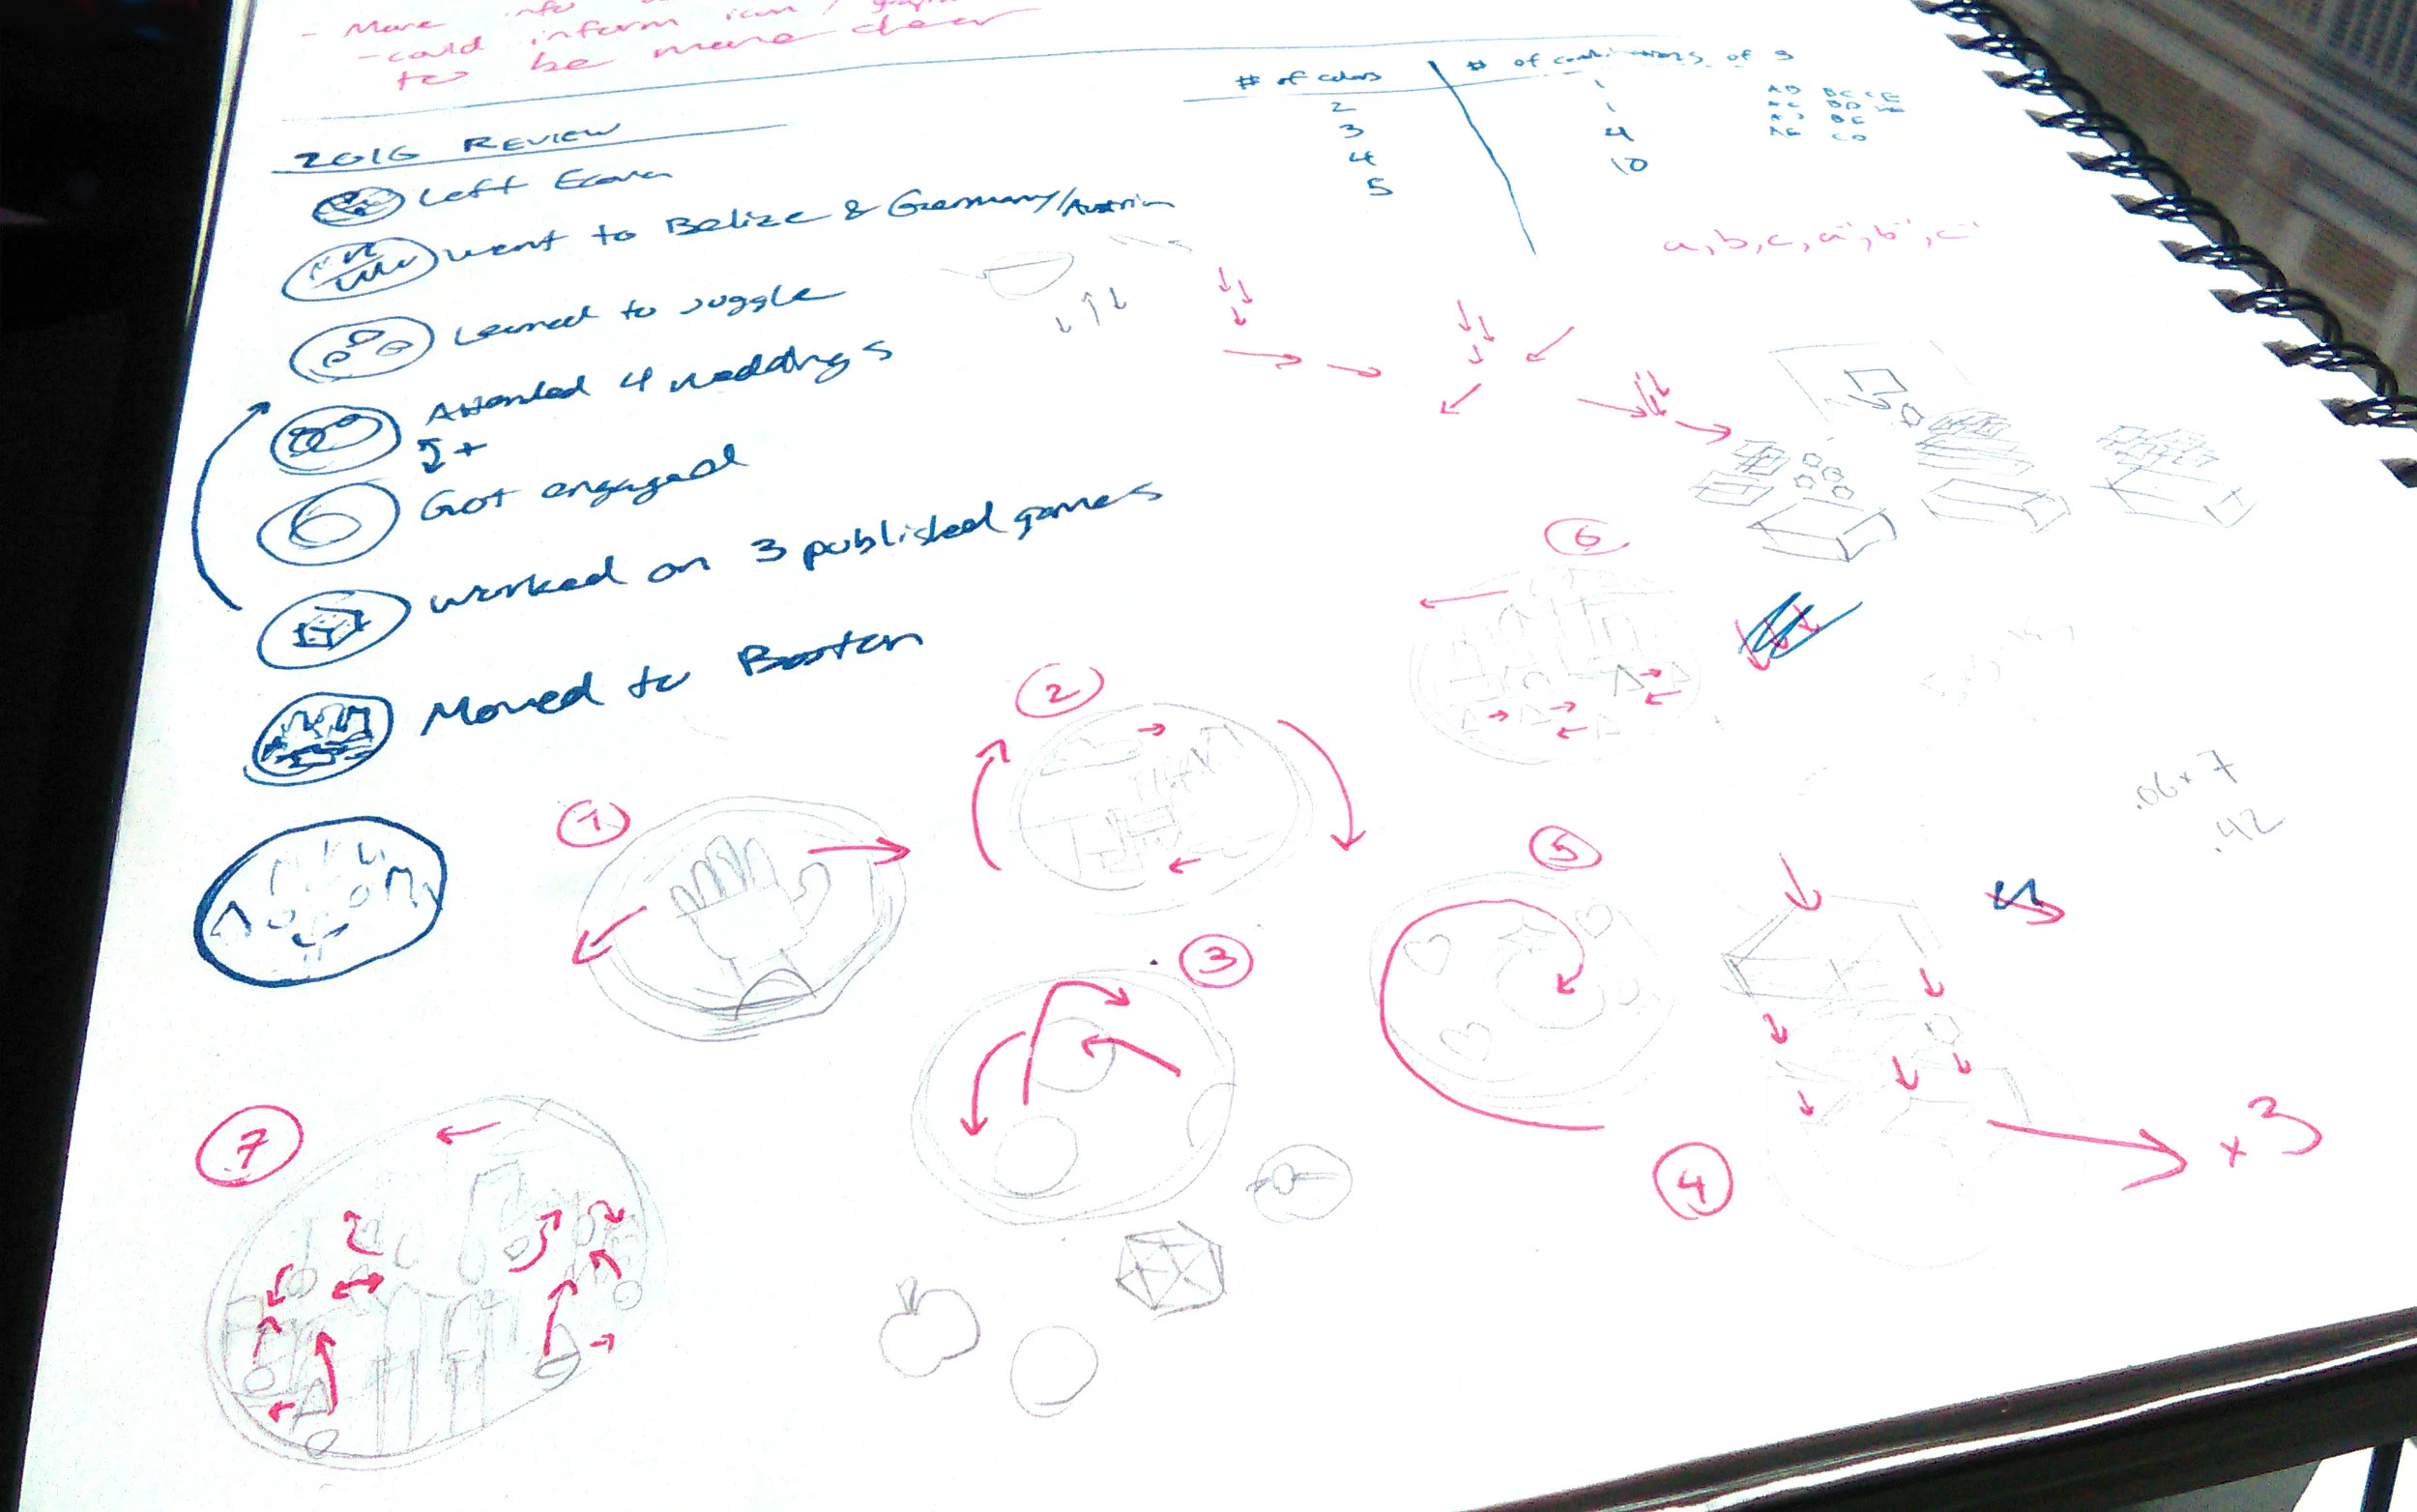 - More info
- could inform icon /
to be more clear
# of colors # of combinations of 3
2 1
3 1
4 4
5 10
AB BC CE
AC BD
AD BE
AE CD
2016 REVIEW
Left
Went to Belize & Germany/Austria
Learned to juggle
Attended 4 weddings
Got engaged
Worked on 3 published games
Moved to Boston
a, b, c, a-, b-, c-
6
2
.06 x 7
.42
1
5
3
7
4
x 3